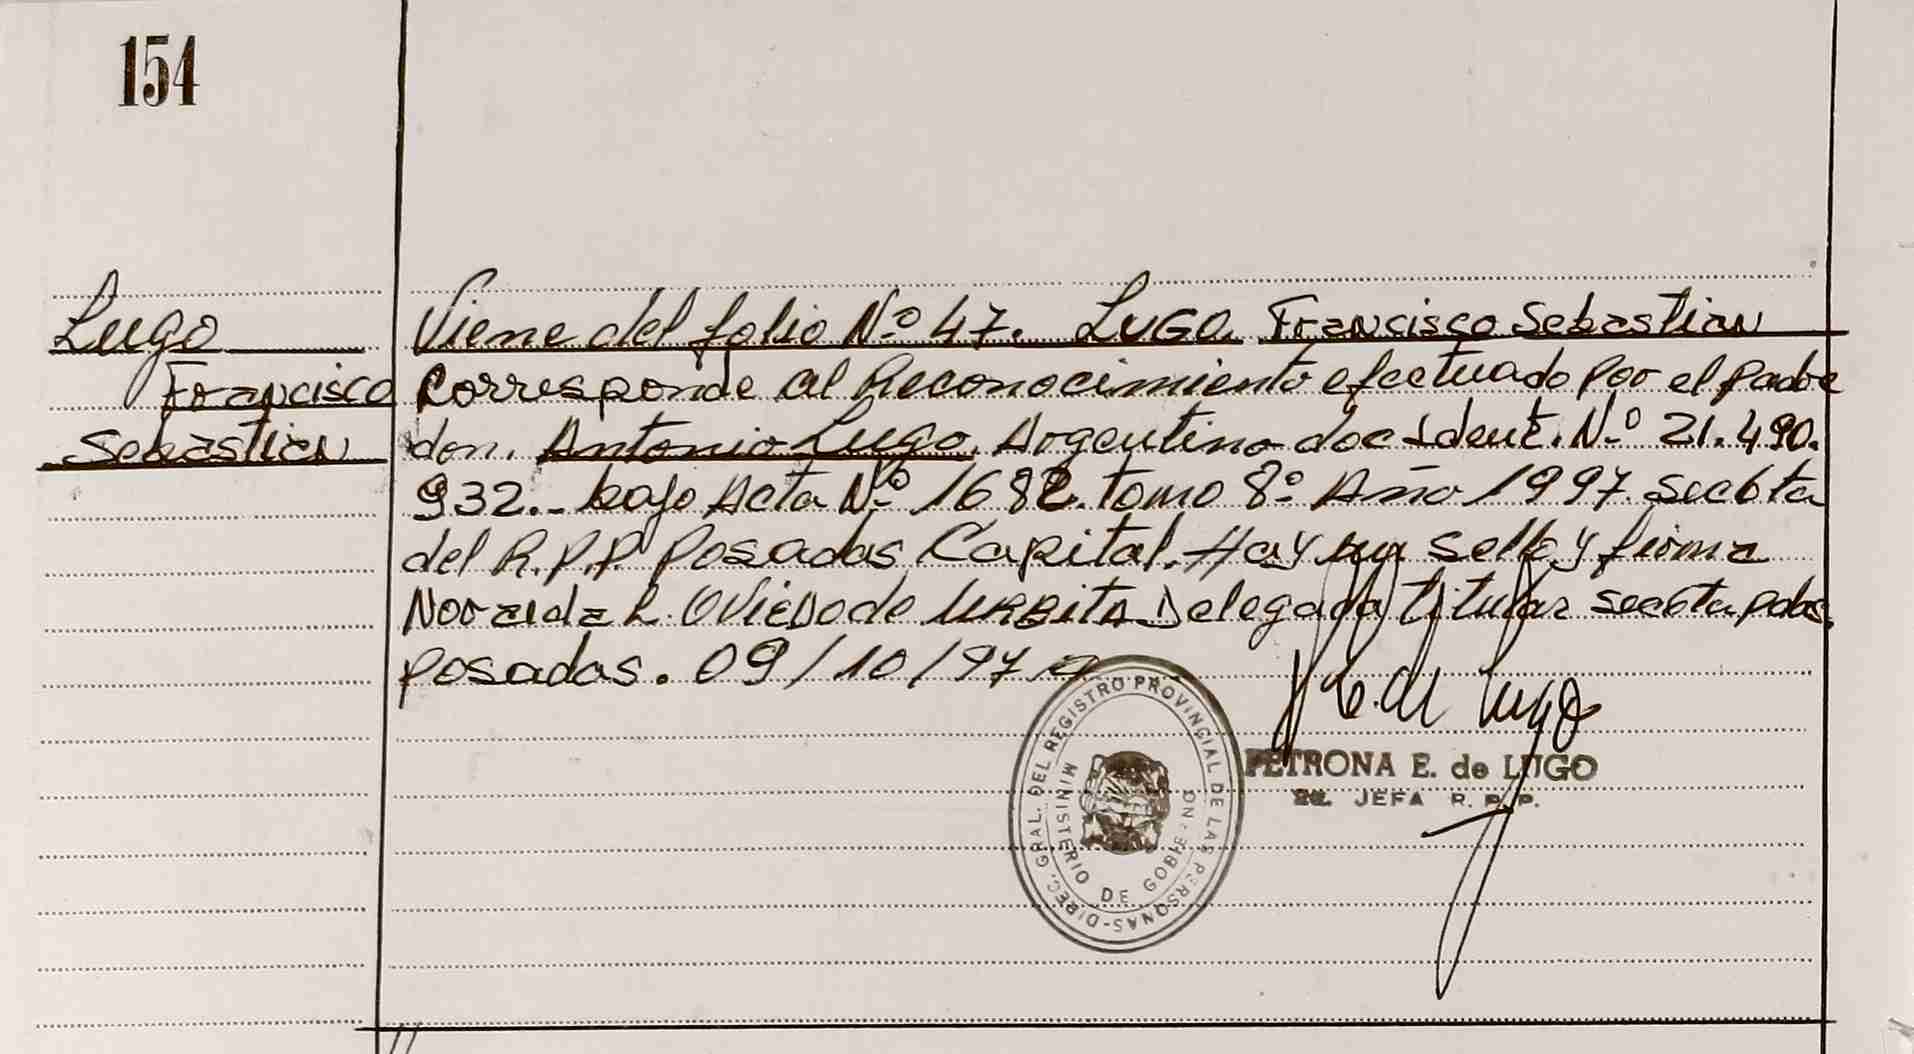 154
Lugo
Francisco
Sebastian
Viene del folio Nº 47. LUGO. Francisco Sebastian
Corresponde al Reconocimiento efectuado por el padre
don. Antonio Lugo. Argentino doc Ident. Nº 21.490.
932.- bajo Acta Nº 1682. tomo 8º Año 1997. sec 6ta
del R.P.P. Posadas Capital. Hay un sello y firma
Noraida R. Oviedo de Urbita Delegada titular sec 6ta pdas.
posadas. 09/10/97
DIREC. GRAL. DEL REGISTRO PROVINCIAL DE LAS PERSONAS-
MINISTERIO DE GOBIERNO
P. E. de Lugo
PETRONA E. de LUGO
JEFA R. P. P.